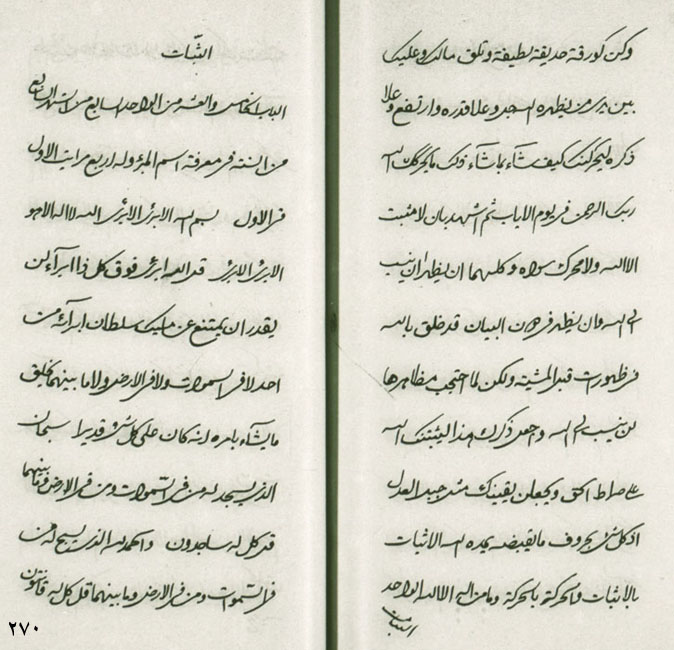 وكن كورقة حديقة لطيفة وتلق مالك وعليك
بين يدى من يظهره الله جل وعلا قدره وارتفع وعلا
ذكره ليحركنك كيف شاء بماشاء ذلك ما يحركك الله
ربك الرحمن فى يوم الاياب ثم اشهد بان لا مثبت
الا الله ولا محرك سواه وكلهما ان يظهران ينسب
الى الله وان يظهر فى دون البيان قد خلق بالله
فى ظهورات قبل المشية ولكن لما احتجب مظاهرها
لن ينسب الى الله واجعل ذكرك هذا ليثبتنك الله
على صراط الحق ويجعلن يقينك مثل جبل العدل
اذ كل شئ بحروف ما يقبضه يمده الله الا اثبات
بالاثبات والحركة بالحركة وما من اله الا الله الواحد
الثبات
الثبات
الباب الخامس والعشر من الواحد السابع من الشهر السابع
من السنة فى معرفة اسم المبرئ وله اربع مراتب الاول
فى الاول بسم الله الابرئ الابرئ الله لا اله الا هو
الابرئ الابرئ قل الله ابرئ فوق كل ذا ابرآء لن
يقدر ان يمتنع عن مليك سلطان ابرآئه من
احد لا فى السموات ولا فى الارض ولا ما بينهما يخلق
ما يشآء بامره انه كان على كل شئ قديرا سبحان
الذى يسجد له من فى السموات ومن فى الارض وما بينهما
قل كل له ساجدون والحمد لله الذى يسبح له من
فى السموات ومن فى الارض وما بينهما قل كل له قانتون
٢٧٠